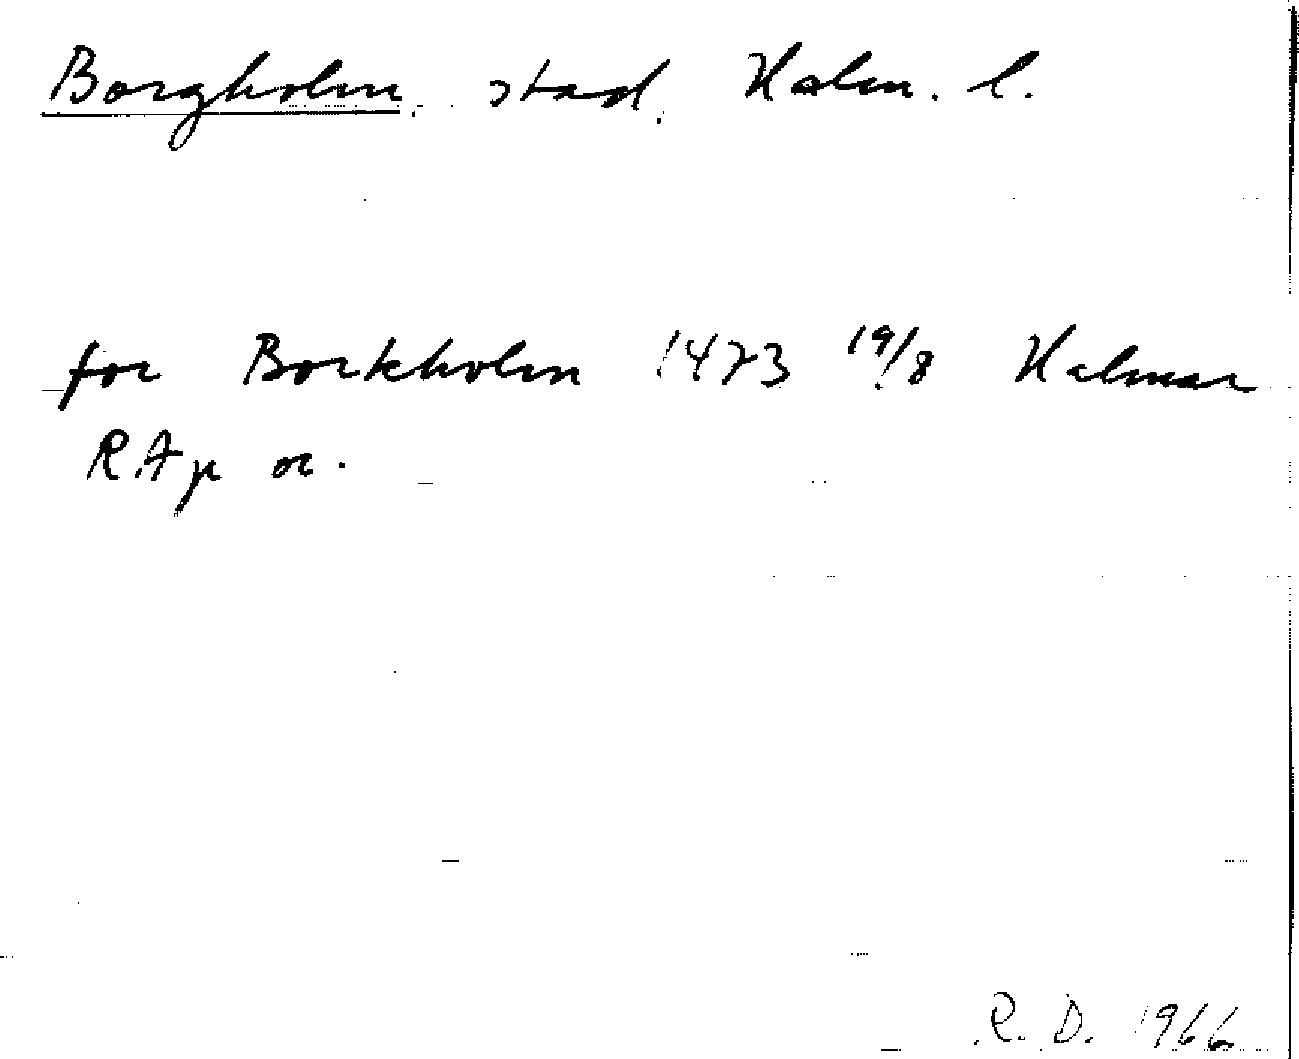 Borgholm, stad, Kalm. l.
for Borkholm 1473 19/8 Kalmar
RAp or.
R. D. 1966